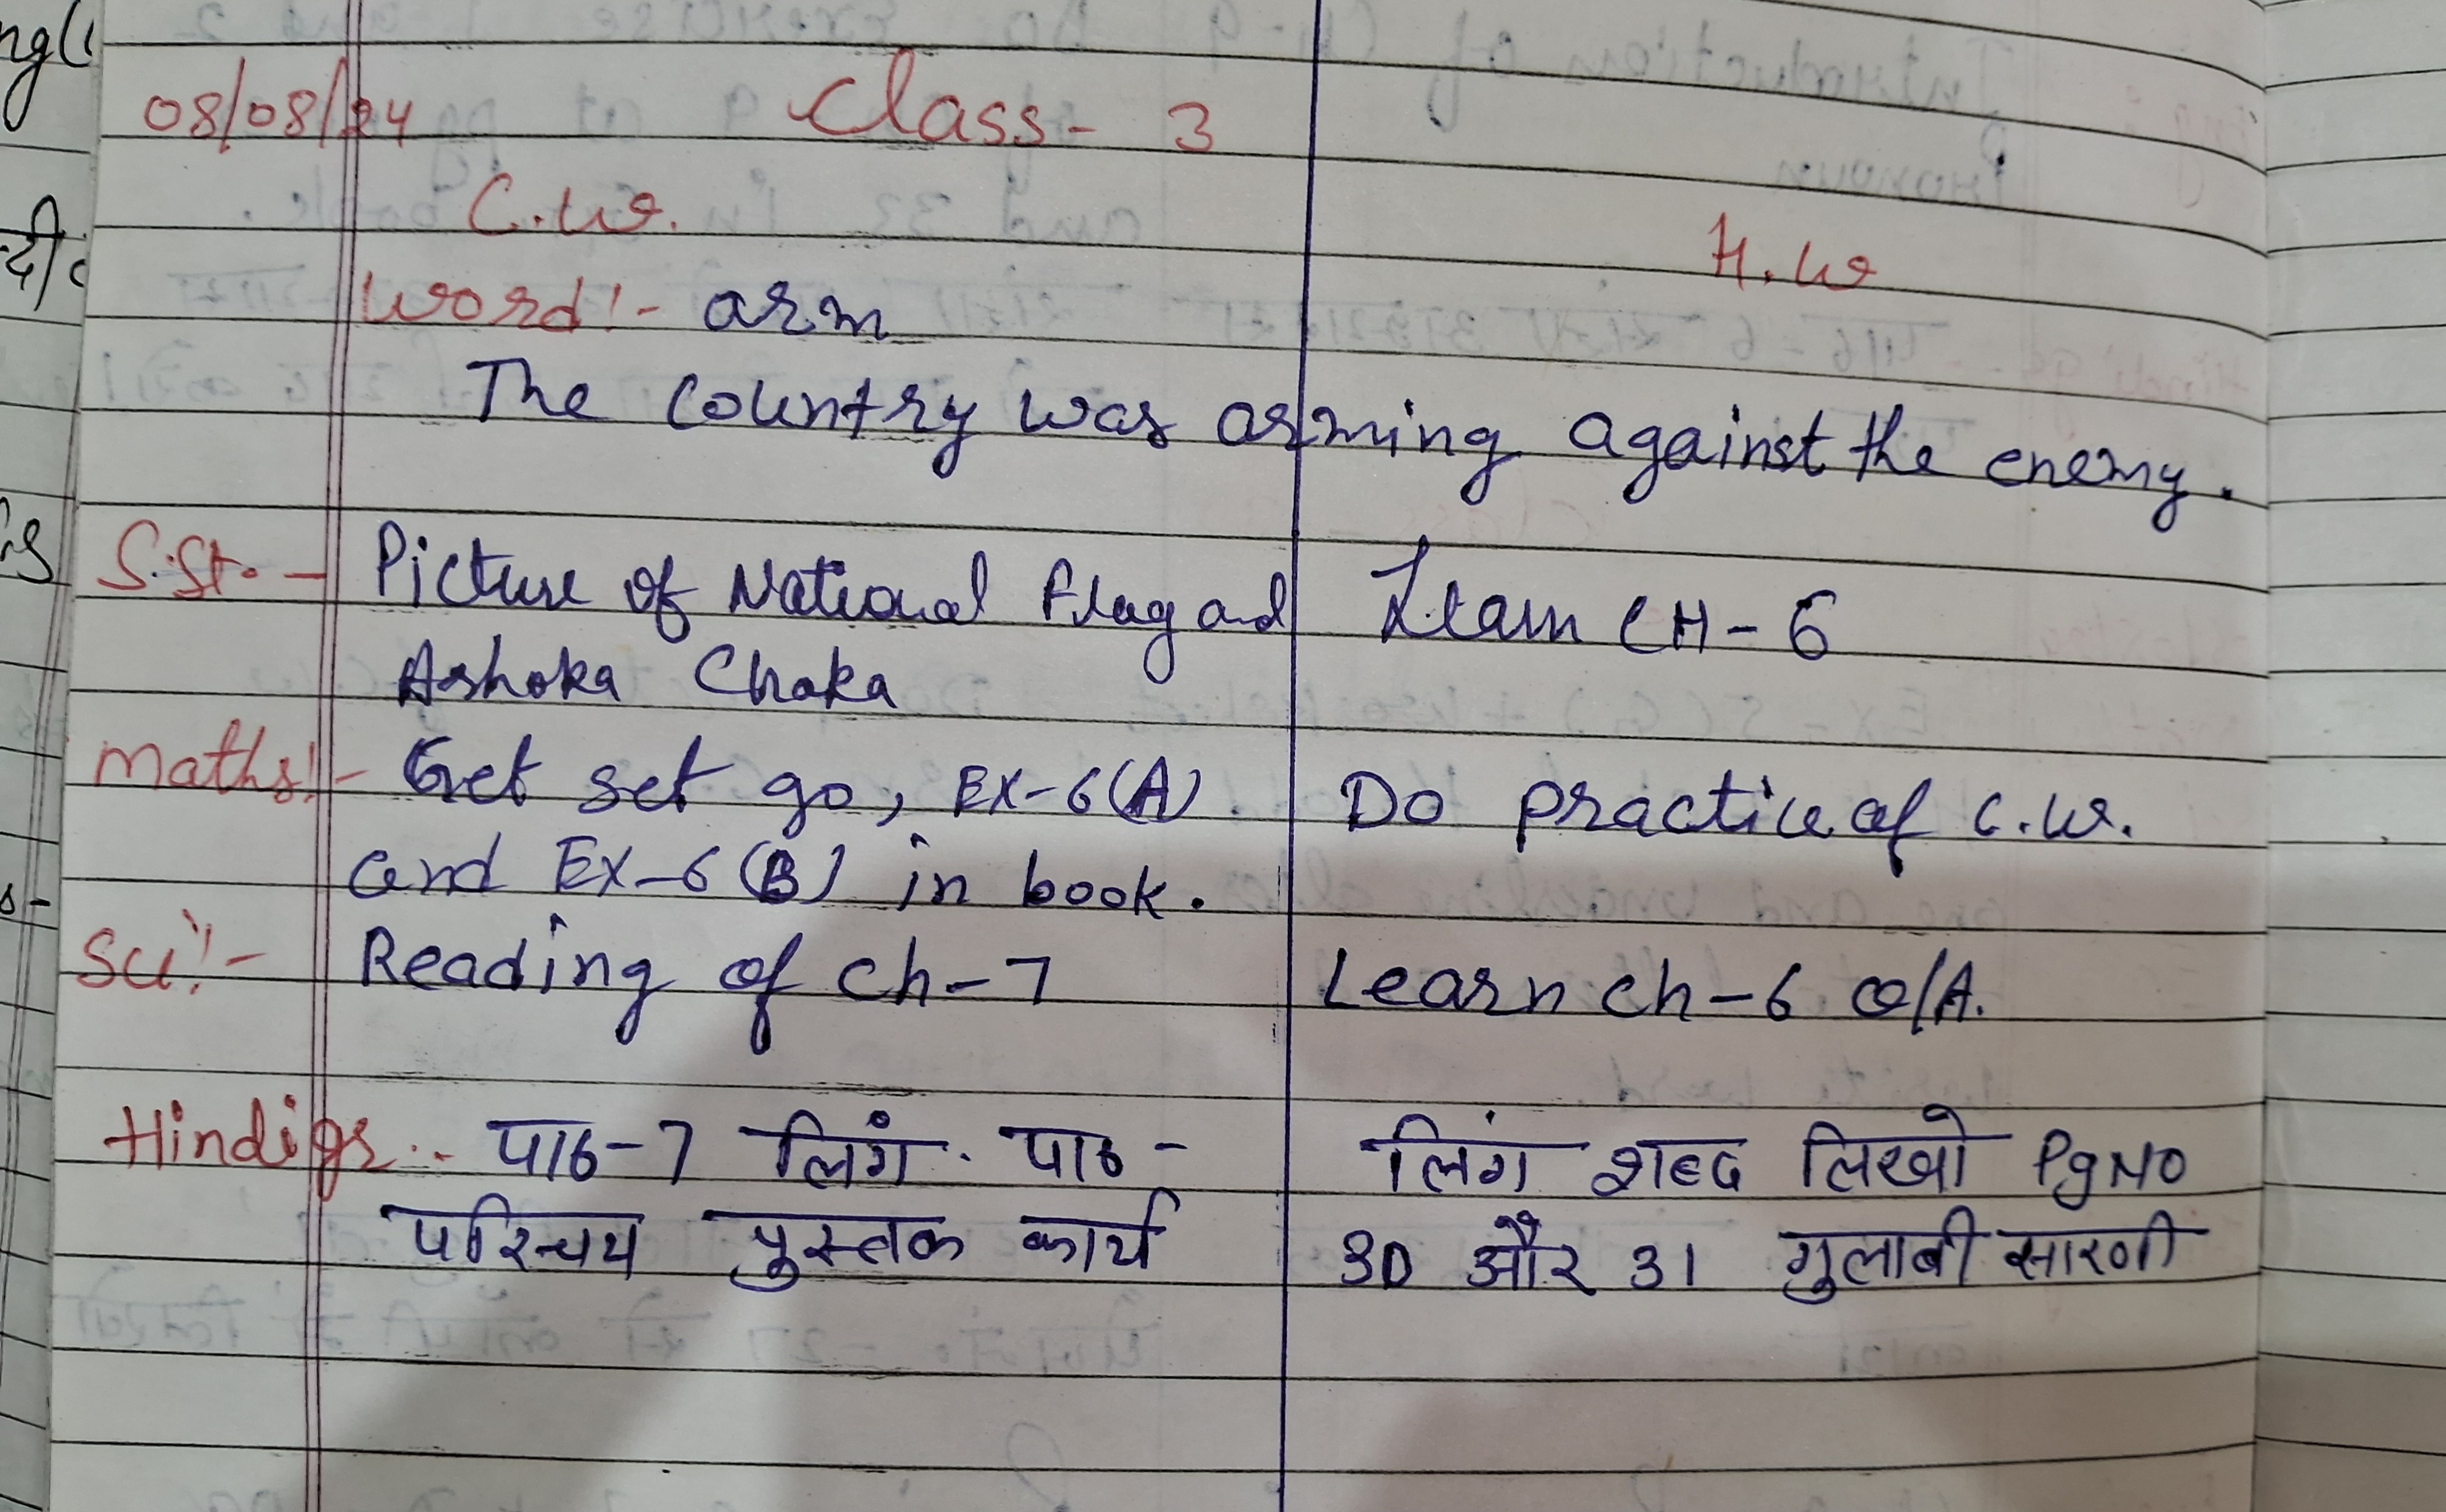 08/08/24 Class- 3
C.w. H.w
word:- arm
The country was arming against the enemy.
S.St. - Picture of National Flag and Learn CH-6
Ashoka Chaka
Maths:- Get set go, EX-6(A). Do practice of C.W.
and EX-6(B) in book.
Sci:- Reading of ch-7 Learn ch-6 Q/A.
Hindi gr.- पाठ-7 लिंग. पाठ- लिंग शब्द लिखो Pg NO
परिचय पुस्तक कार्य 30 और 31 गुलाबी सारणी